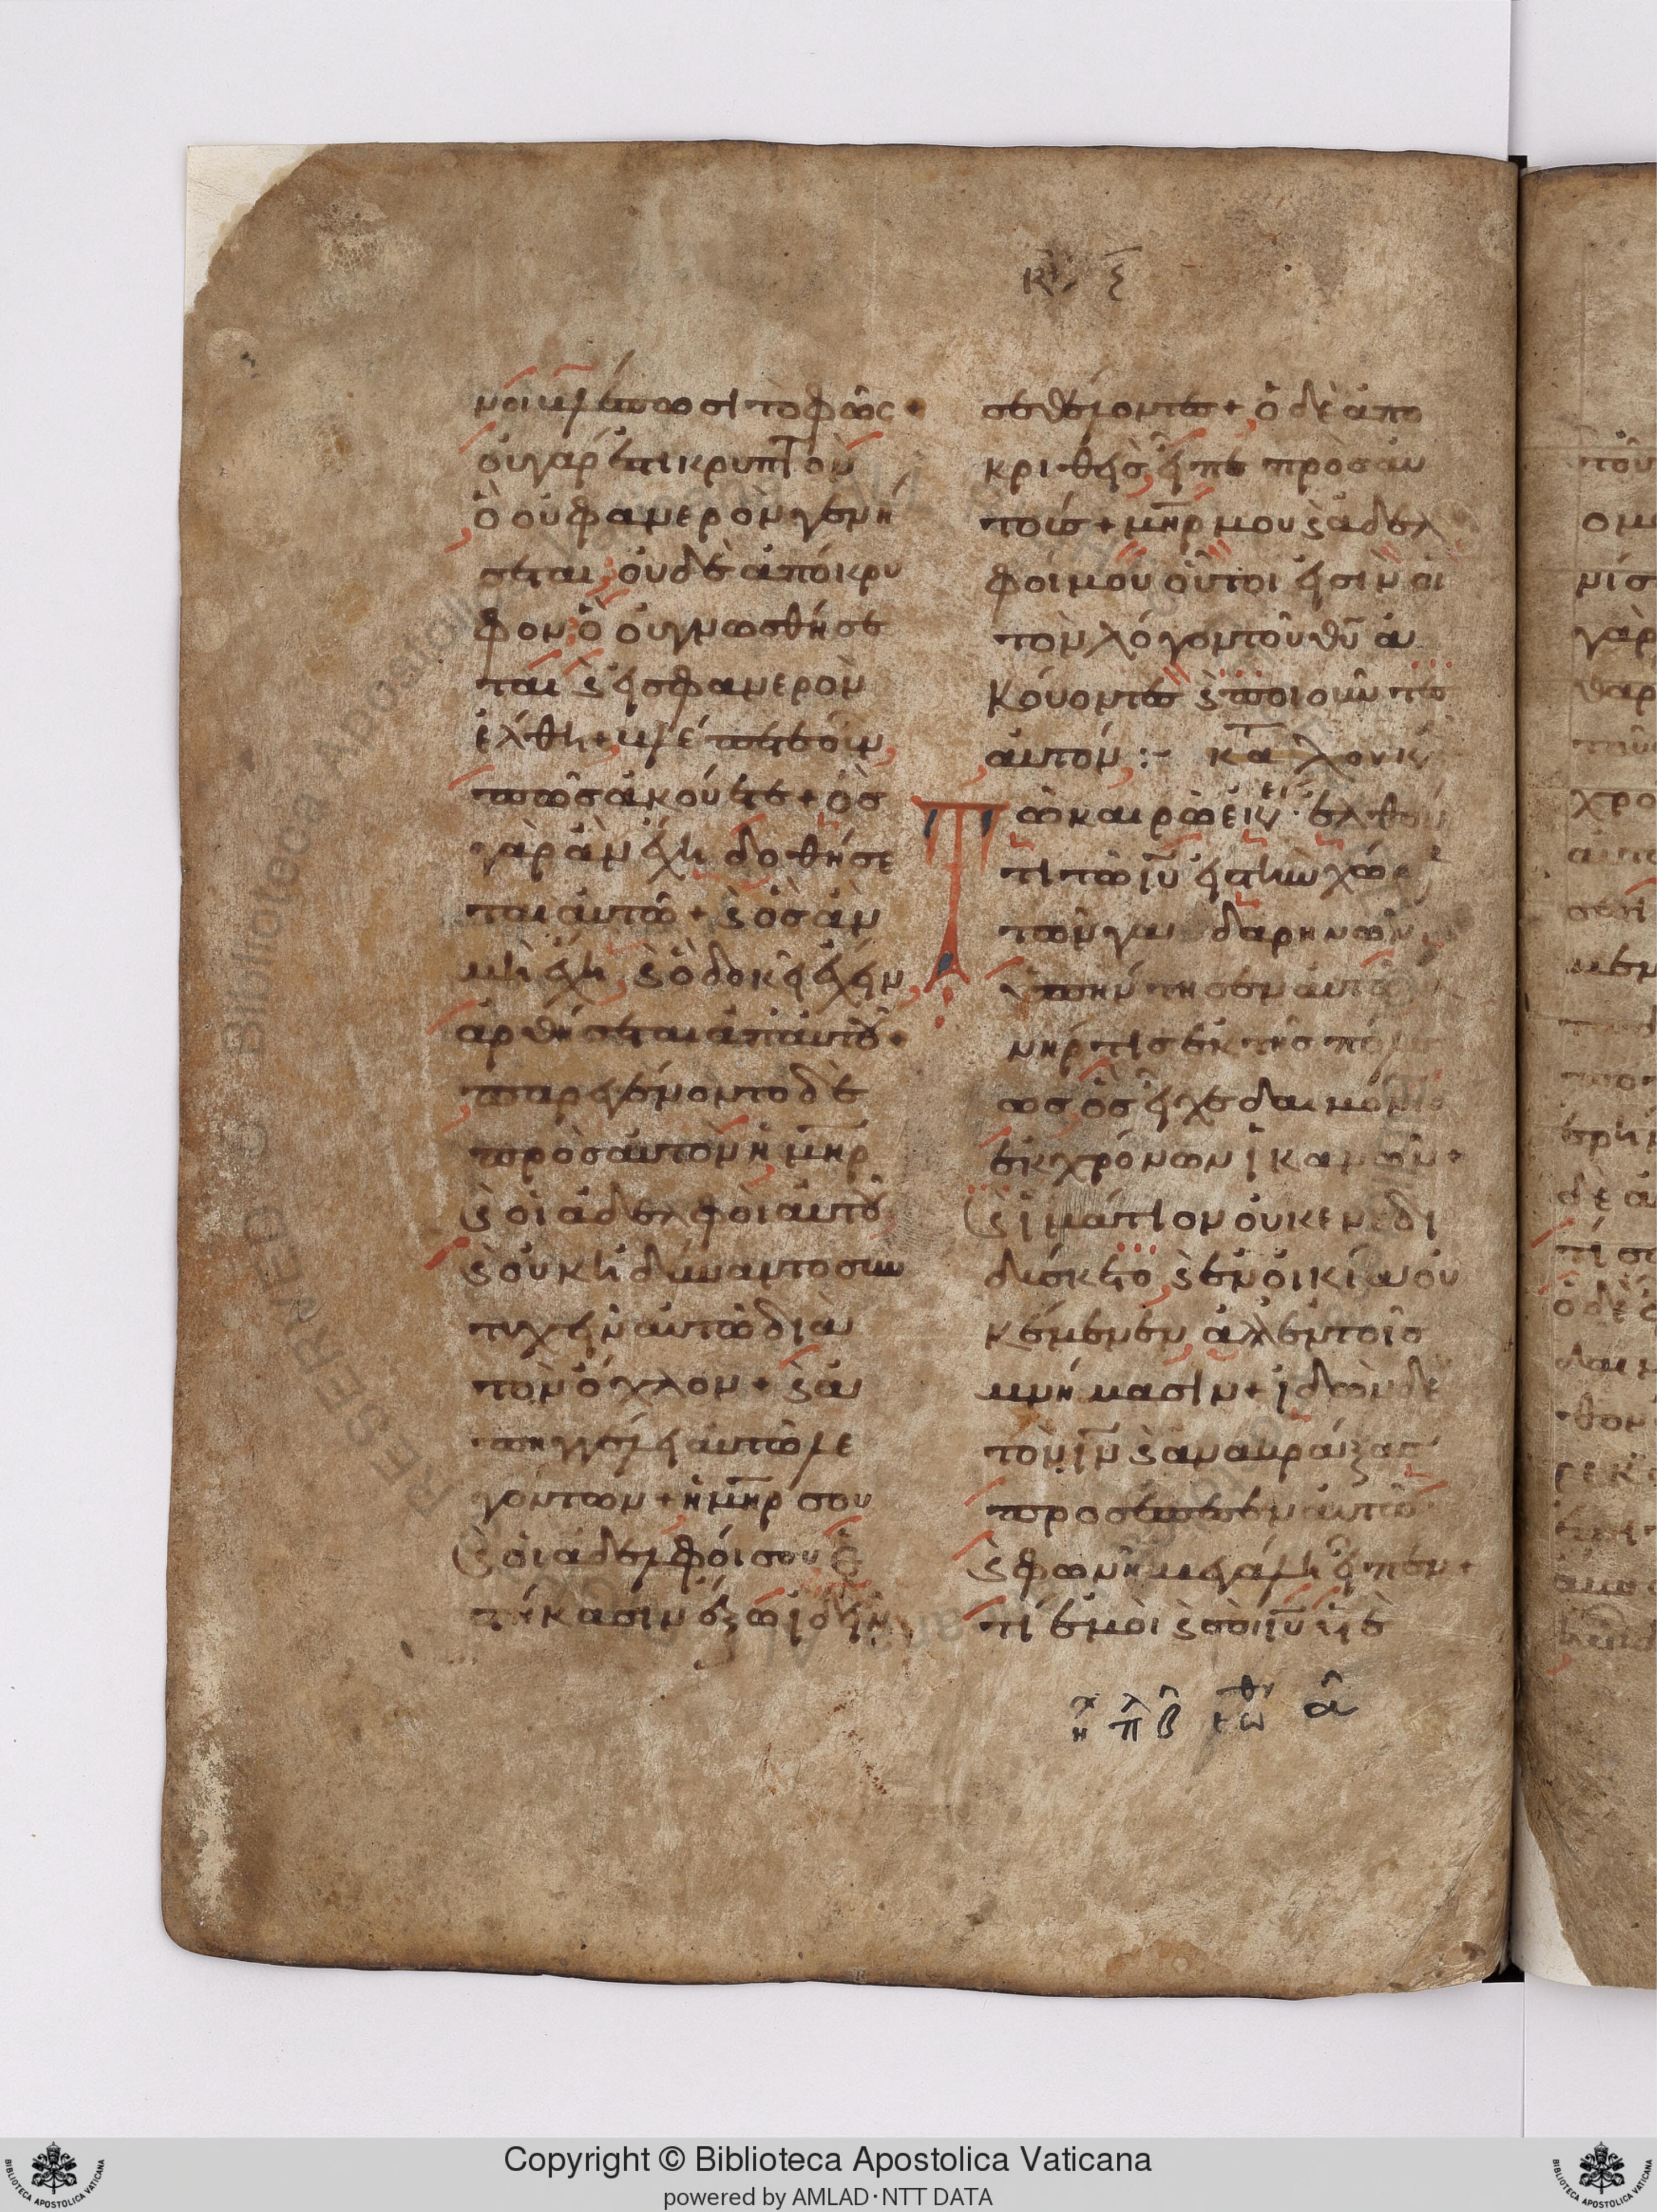 κυ ς
νοι βλέπωσι το φῶς +
οὐ γάρ ἐστι κρυπτὸν
ὃ οὐ φανερὸν γενή
σεται, οὐδὲ ἀπόκρυ
φον ὃ οὐ γνωσθήσε
ται ϗ εἰς φανερὸν
ἔλθη + βλέπετε οὖν
πῶς ἀκούετε + ὃς
γὰρ ἂν ἔχη δοθήσε
ται αὐτῶ + ϗ ὃς ἂν
μὴ ἔχη, ϗ ὃ δοκεῖ ἔχειν
ἀρθήσεται ἀπ αὐτοῦ +
παρεγένοντο δὲ
πρὸς αὐτὸν ἡ μηρ
ϗ οἱ ἀδελφοὶ αὐτοῦ
ϗ οὐκ ἠδύναντο συν
τυχεῖν αὐτῶ διὰ
τὸν ὄχλον + ϗ ἀ
πηγγέλει αὐτῶ λε
γόντων + ἡ μηρ σου
ϗ οἱ ἀδελφοί σου ἑ
στήκασιν ἔξω ἰδεῖν
σε θέλοντες + ὁ δὲ ἀπο
κριθεὶς εἶπε πρὸς αὐ
τούς + μηρ μου ϗ ἀδελ
φοί μου οὗτοι εἰσὶν οἱ
τὸν λόγον τοῦ θυ ἀ
κούοντες ϗ ποιοῦντες
αὐτόν :- κατα λουκ
Τῶ καιρῶ ἐκείν· ἐλθόν
τι τῶ ιυ εἰς τὴν χώρ
τῶν γαδαρηνῶν
ὑπήντησεν αὐτῶ
ἀνήρ τις ἐκ τῆς πόλε
ως ὃς εἶχε δαιμόνια
ἐκ χρόνων ἱκανῶν +
ϗ ἱμάτιον οὐκ ἐνεδι
δύσκετο, ϗ ἐν οἰκία οὐ
κ ἔμενεν, ἀλλ ἐν τοῖς
μνήμασιν + ἰδὼν δὲ
τὸν ιν ϗ ἀνακράξας
προσέπεσεν αὐτῶ
ϗ φωνῆ μεγάλη εἶπεν +
τί ἐμοὶ ϗ σοὶ ιυ υἱὲ